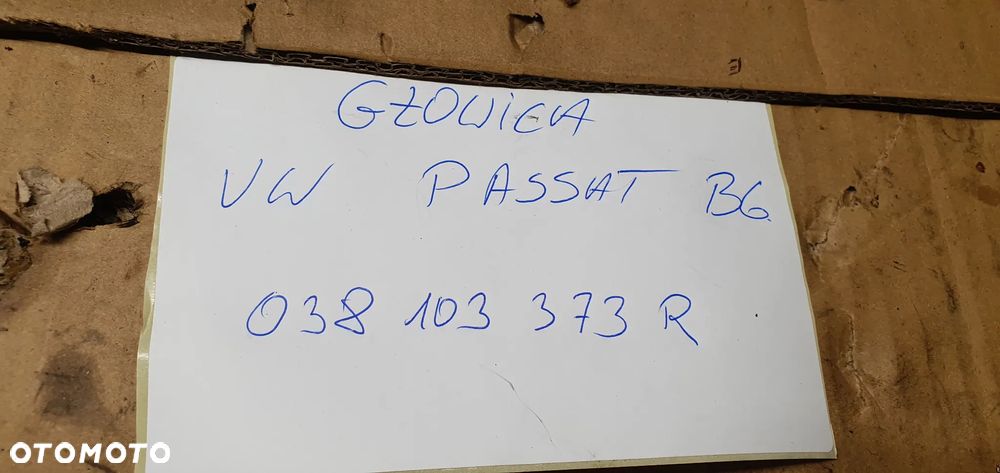 GŁOWICA
VW PASSAT B6
038 103 373 R
OTOMOTO